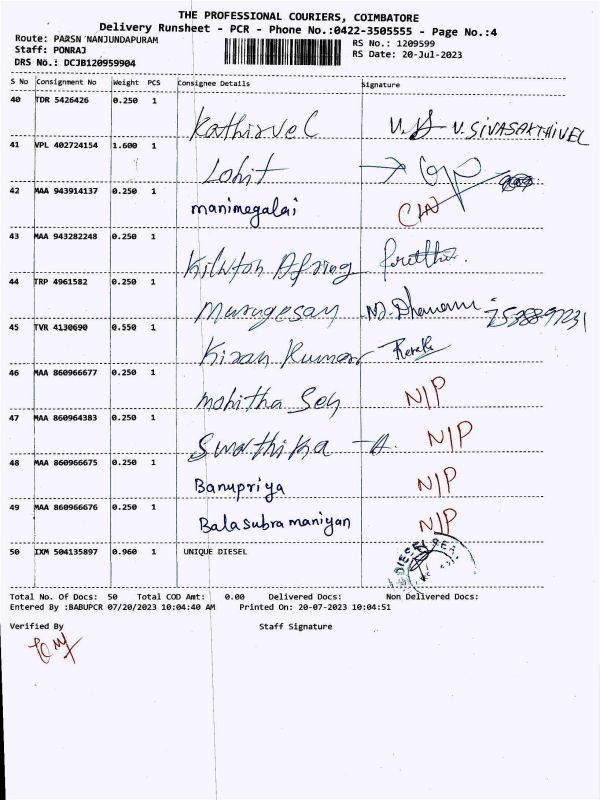 THE PROFESSIONAL COURIERS, COIMBATORE
Delivery Runsheet - PCR - Phone No.:0422-3505555 - Page No.:4
Route: PARSN NANJUNDAPURAM RS No.: 1209599
Staff: PONRAJ RS Date: 20-Jul-2023
DRS No.: DCJB120959904
S No Consignment No Weight PCS Consignee Details Signature
40 TDR 5426426 0.250 1
Kathirvel V. SIVASAKTHIVEL
41 VPL 402724154 1.600 1
Lohit
42 MAA 943914137 0.250 1
manimegalai
43 MAA 943282248 0.250 1
44 TRP 4961582 0.250 1
Murugesan
45 TVR 4130690 0.550 1
Kiran Kumar
46 MAA 860966677 0.250 1
mohitha Sen N/P
47 MAA 860964383 0.250 1
Swathika A. N/P
48 MAA 860966675 0.250 1
Banupriya N/P
49 MAA 860966676 0.250 1
Balasubramaniyan N/P
50 IXM 504135897 0.960 1 UNIQUE DIESEL
Total No. Of Docs: 50 Total COD Amt: 0.00 Delivered Docs: Non Delivered Docs:
Entered By :BABUPCR 07/20/2023 10:04:40 AM Printed On: 20-07-2023 10:04:51
Verified By Staff Signature